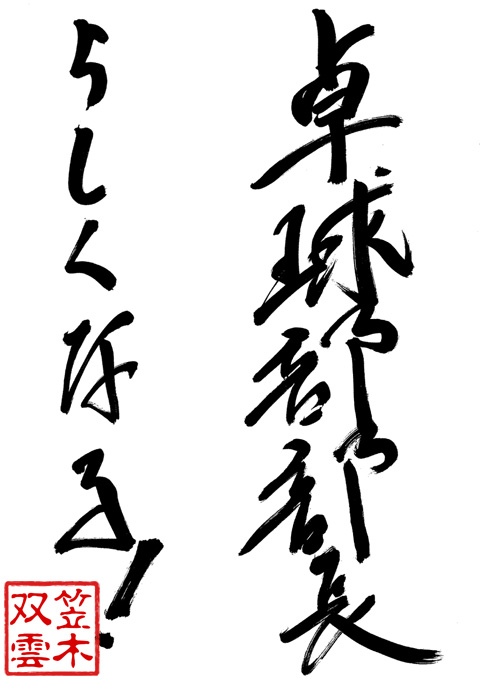 卓球部部長
よろしくな!
笠木
双雲